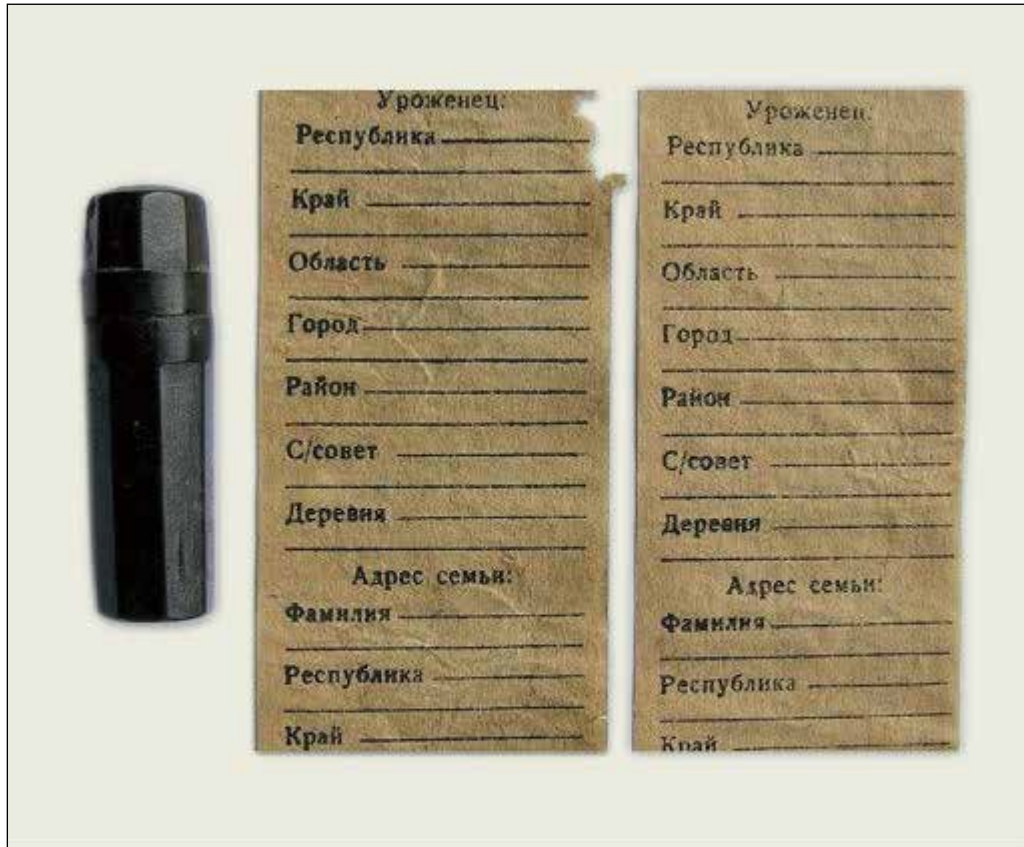 Уроженец:
Республика
Край
Область
Город
Район
С/совет
Деревня
Адрес семьи:
Фамилия
Республика
Край
Уроженец:
Республика
Край
Область
Город
Район
С/совет
Деревня
Адрес семьи:
Фамилия
Республика
Край